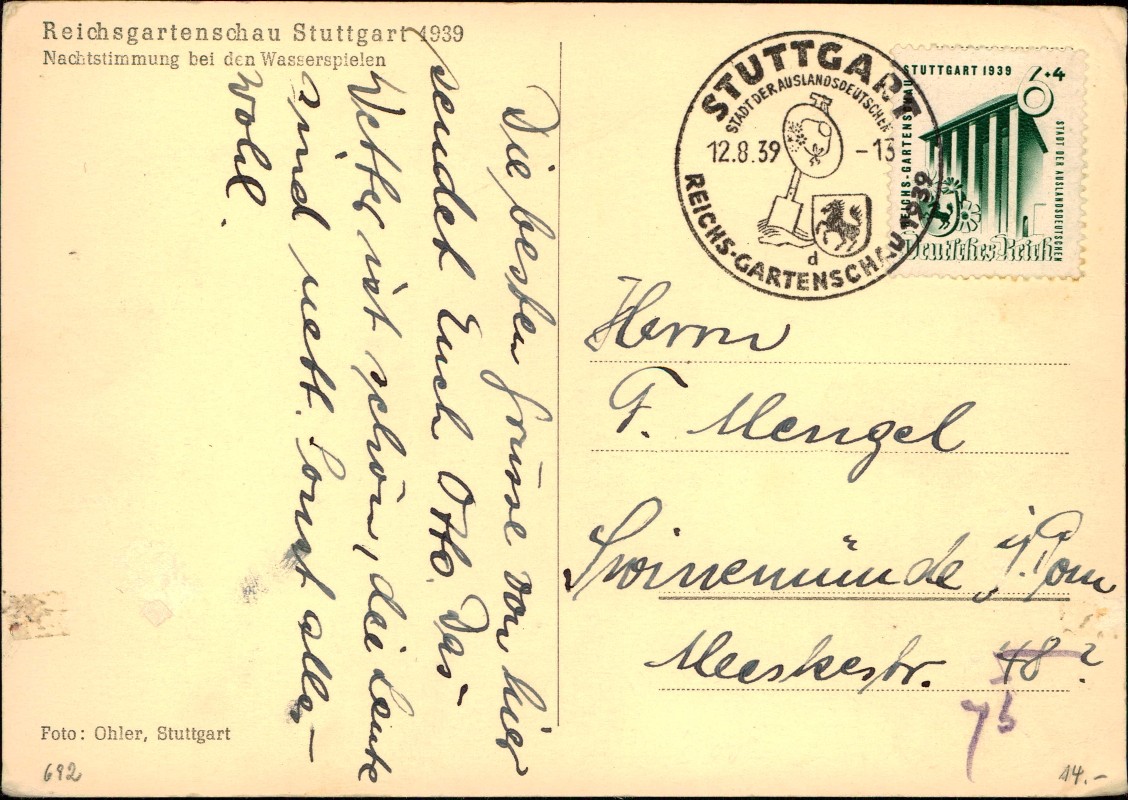 Reichsgartenschau Stuttgart 1939
Nachtstimmung bei den Wasserspielen
Die besten Grüsse von hier
sendet Euch Otto. Das
Wetter ist schön, die Leute
sind nett. Sonst alles
wohl.
STUTTGART
STADT DER AUSLANDSDEUTSCHEN
12.8.39 -13
d
REICHS-GARTENSCHAU 1939
STUTTGART 1939
6+4
REICHS-GARTENSCHAU
STADT DER AUSLANDSDEUTSCHEN
Deutsches Reich
Herrn
F. Mengel
Swinemünde i. Pom
48?
7b
Foto: Ohler, Stuttgart
692
14.-